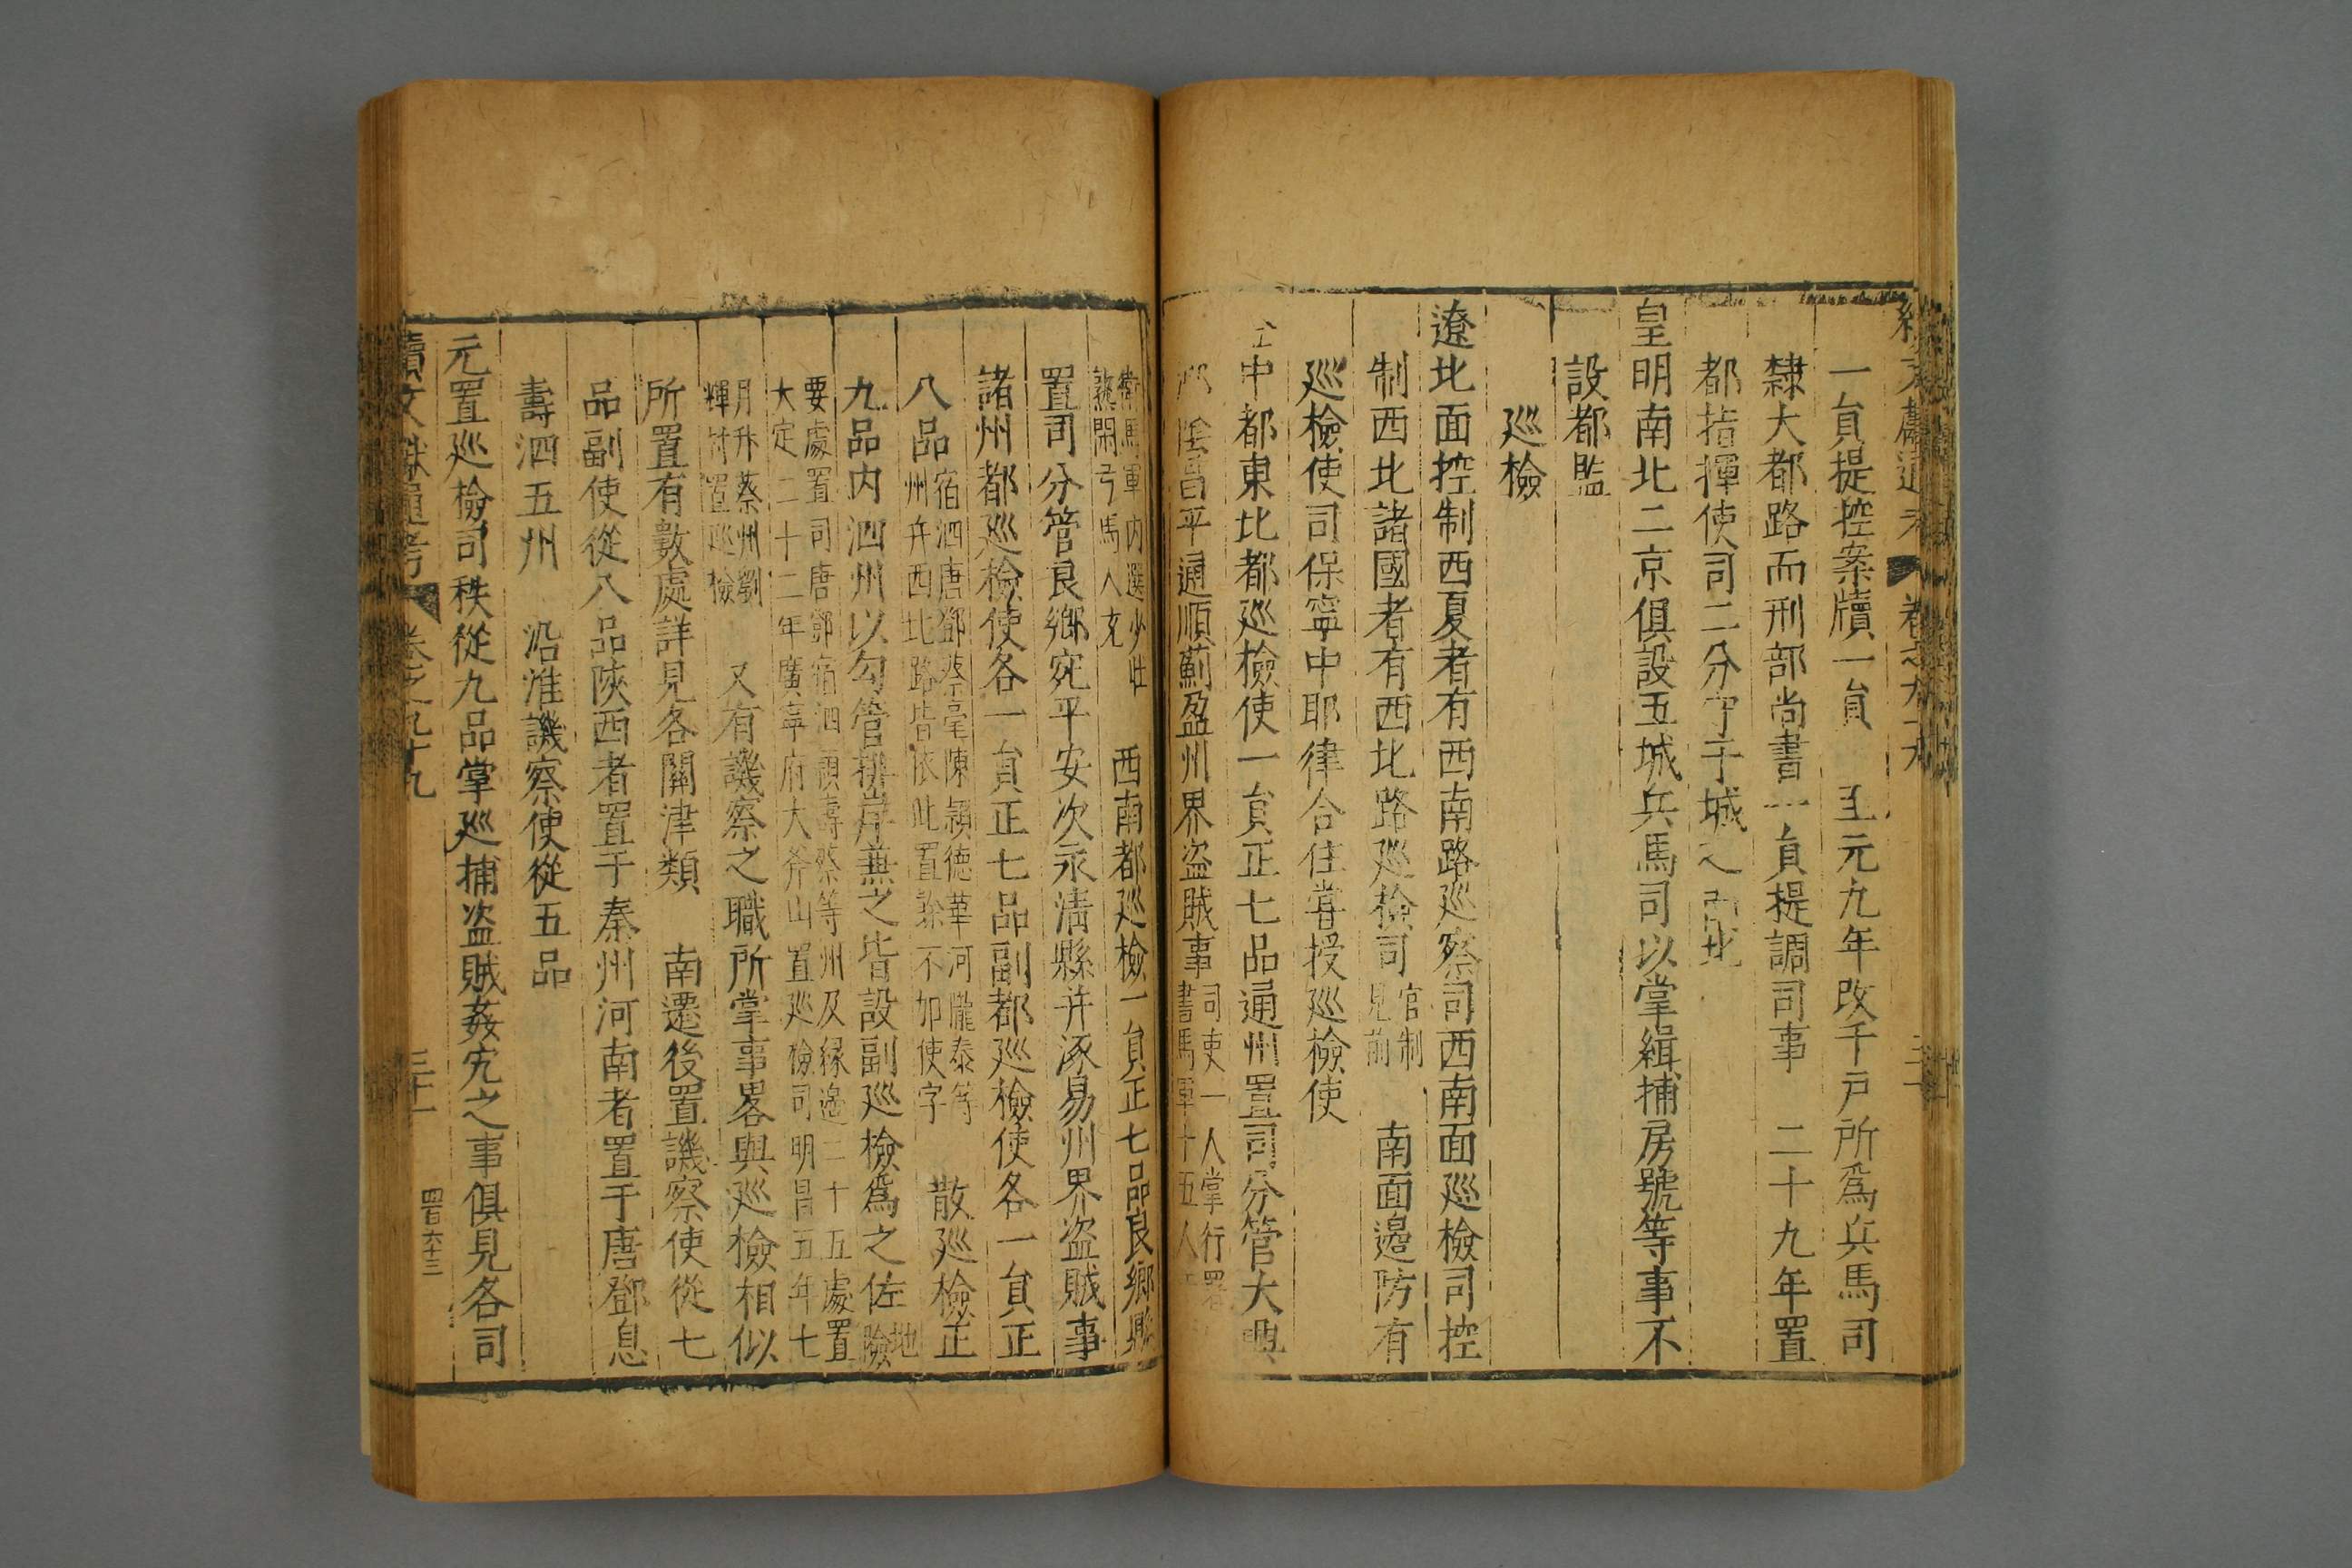 一員提控案牘一員　至元九年改千戶所爲兵馬司
隸大都路而刑部尚書一員提調司事　二十九年置
都指揮使司二分守于城之南北
皇明南北二京俱設五城兵馬司以掌緝捕房號等事不
設都監
巡檢
遼北面控制西夏者有西南路巡察司西南面巡檢司控
制西北諸國者有西北路巡檢司
官制
見前
南面邊防有
巡檢使司保寧中耶律合住甞授巡檢使
中都東北都巡檢使一員正七品通州置司分管大興
陰昌平通順薊盈州界盜賊事
司吏一人掌行署
書馬軍十五人
衛馬軍內選少壯
熟閑弓馬人充
西南都巡檢一員正七品良鄉縣
置司分管良鄉宛平安次永清縣并涿易州界盜賊事
諸州都巡檢使各一員正七品副都巡檢使各一員正
八品
宿泗唐鄧蔡亳陳潁德華河隴泰等
州并西北路皆依此置餘不加使字
散巡檢正
九品內泗州以勾管排岸兼之皆設副巡檢爲之佐
地
險
要處置司唐鄧宿泗潁壽蔡等州及緣邊二十五處置
大定二十二年廣寧府大斧山置巡檢司明昌五年七
月升蔡州劉
輝村置巡檢
又有譏察之職所掌事畧與巡檢相似
所置有數處詳見各關津類　南遷後置譏察使從七
品副使從八品陝西者置于秦州河南者置于唐鄧息
壽泗五州　沿淮譏察使從五品
元置巡檢司秩從九品掌巡捕盜賊姦宄之事俱見各司
續文獻通考　卷之九十九　三十一　四百六十三